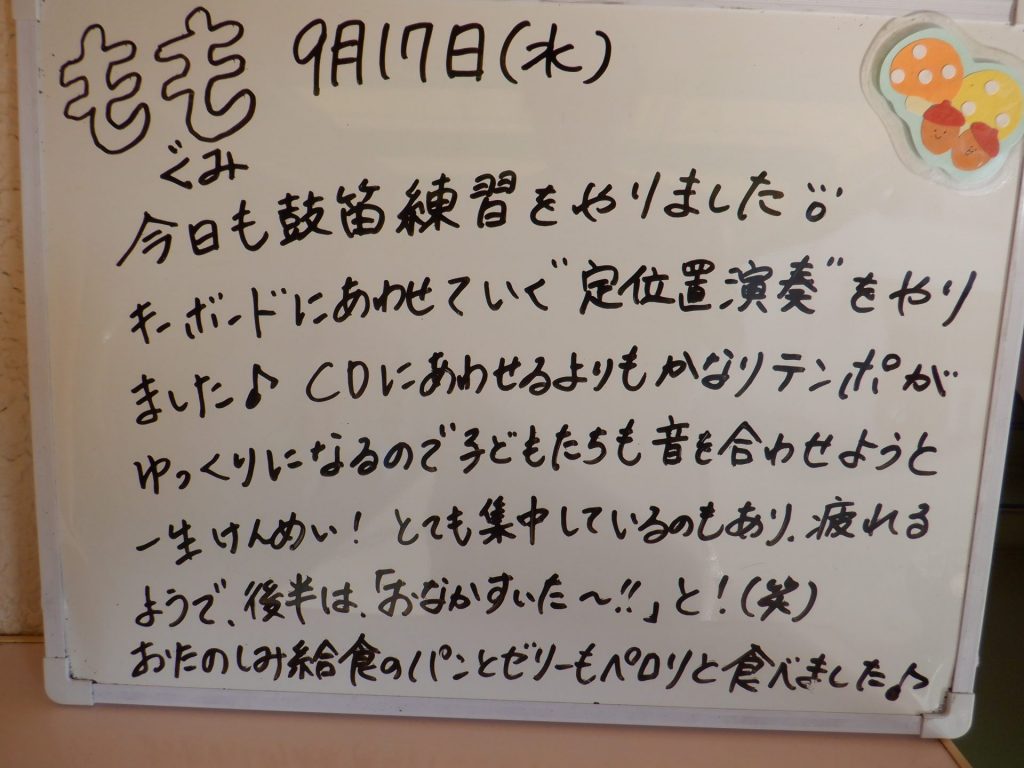 もも 9月17日(水)
ぐみ
今日も鼓笛練習をやりました
キーボードにあわせていく"定位置演奏"をやり
ました♪ CDにあわせるよりもかなりテンポが
ゆっくりになるので子どもたちも音を合わせようと
一生けんめい! とても集中しているのもあり、疲れる
ようで、後半は、「おなかすいた〜!!」と!(笑)
おたのしみ給食のパンとゼリーもペロリと食べました♪